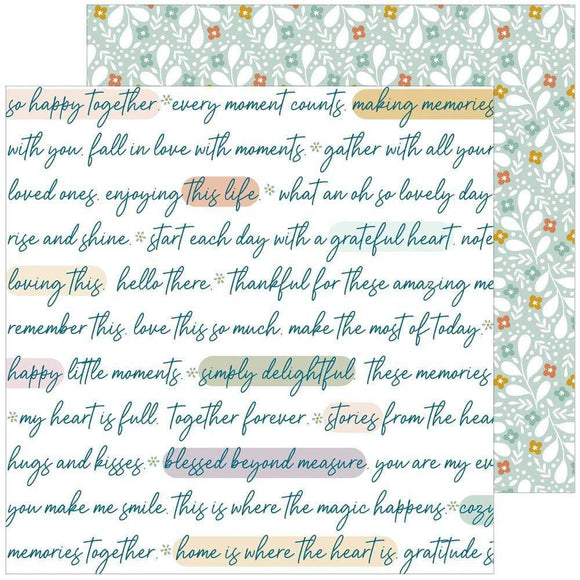 so happy together. *every moment counts. making memories
with you. fall in love with moments. *gather with all your
loved ones. enjoying this life. *what an oh so lovely day
rise and shine. *start each day with a grateful heart. note
loving this. hello there. *thankful for these amazing me
remember this. love this so much. make the most of today.
happy little moments. *simply delightful. These memories
*my heart is full. Together forever. *stories from the hear
hugs and kisses. *blessed beyond measure. you are my ev
you make me smile. This is where the magic happens. *cozy
memories together. *home is where the heart is. gratitude s